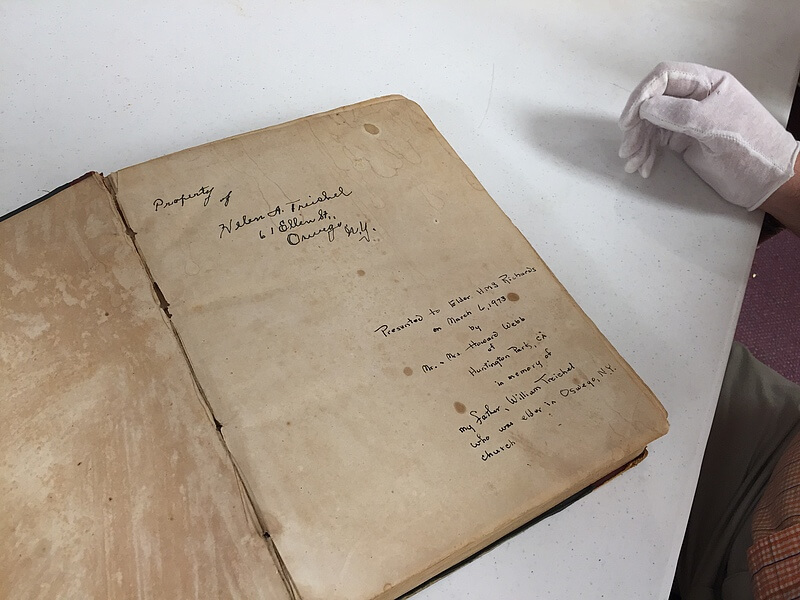 Property of
Helen A. Treichel
61 Ellen St.,
Oswego, N.Y.
Presented to Elder HMS Richards
on March 6, 1973
by
Mr. & Mrs. Howard Webb
of
Huntington Park, CA
in memory of
my father, William Treichel
who was elder in Oswego, N.Y.
church